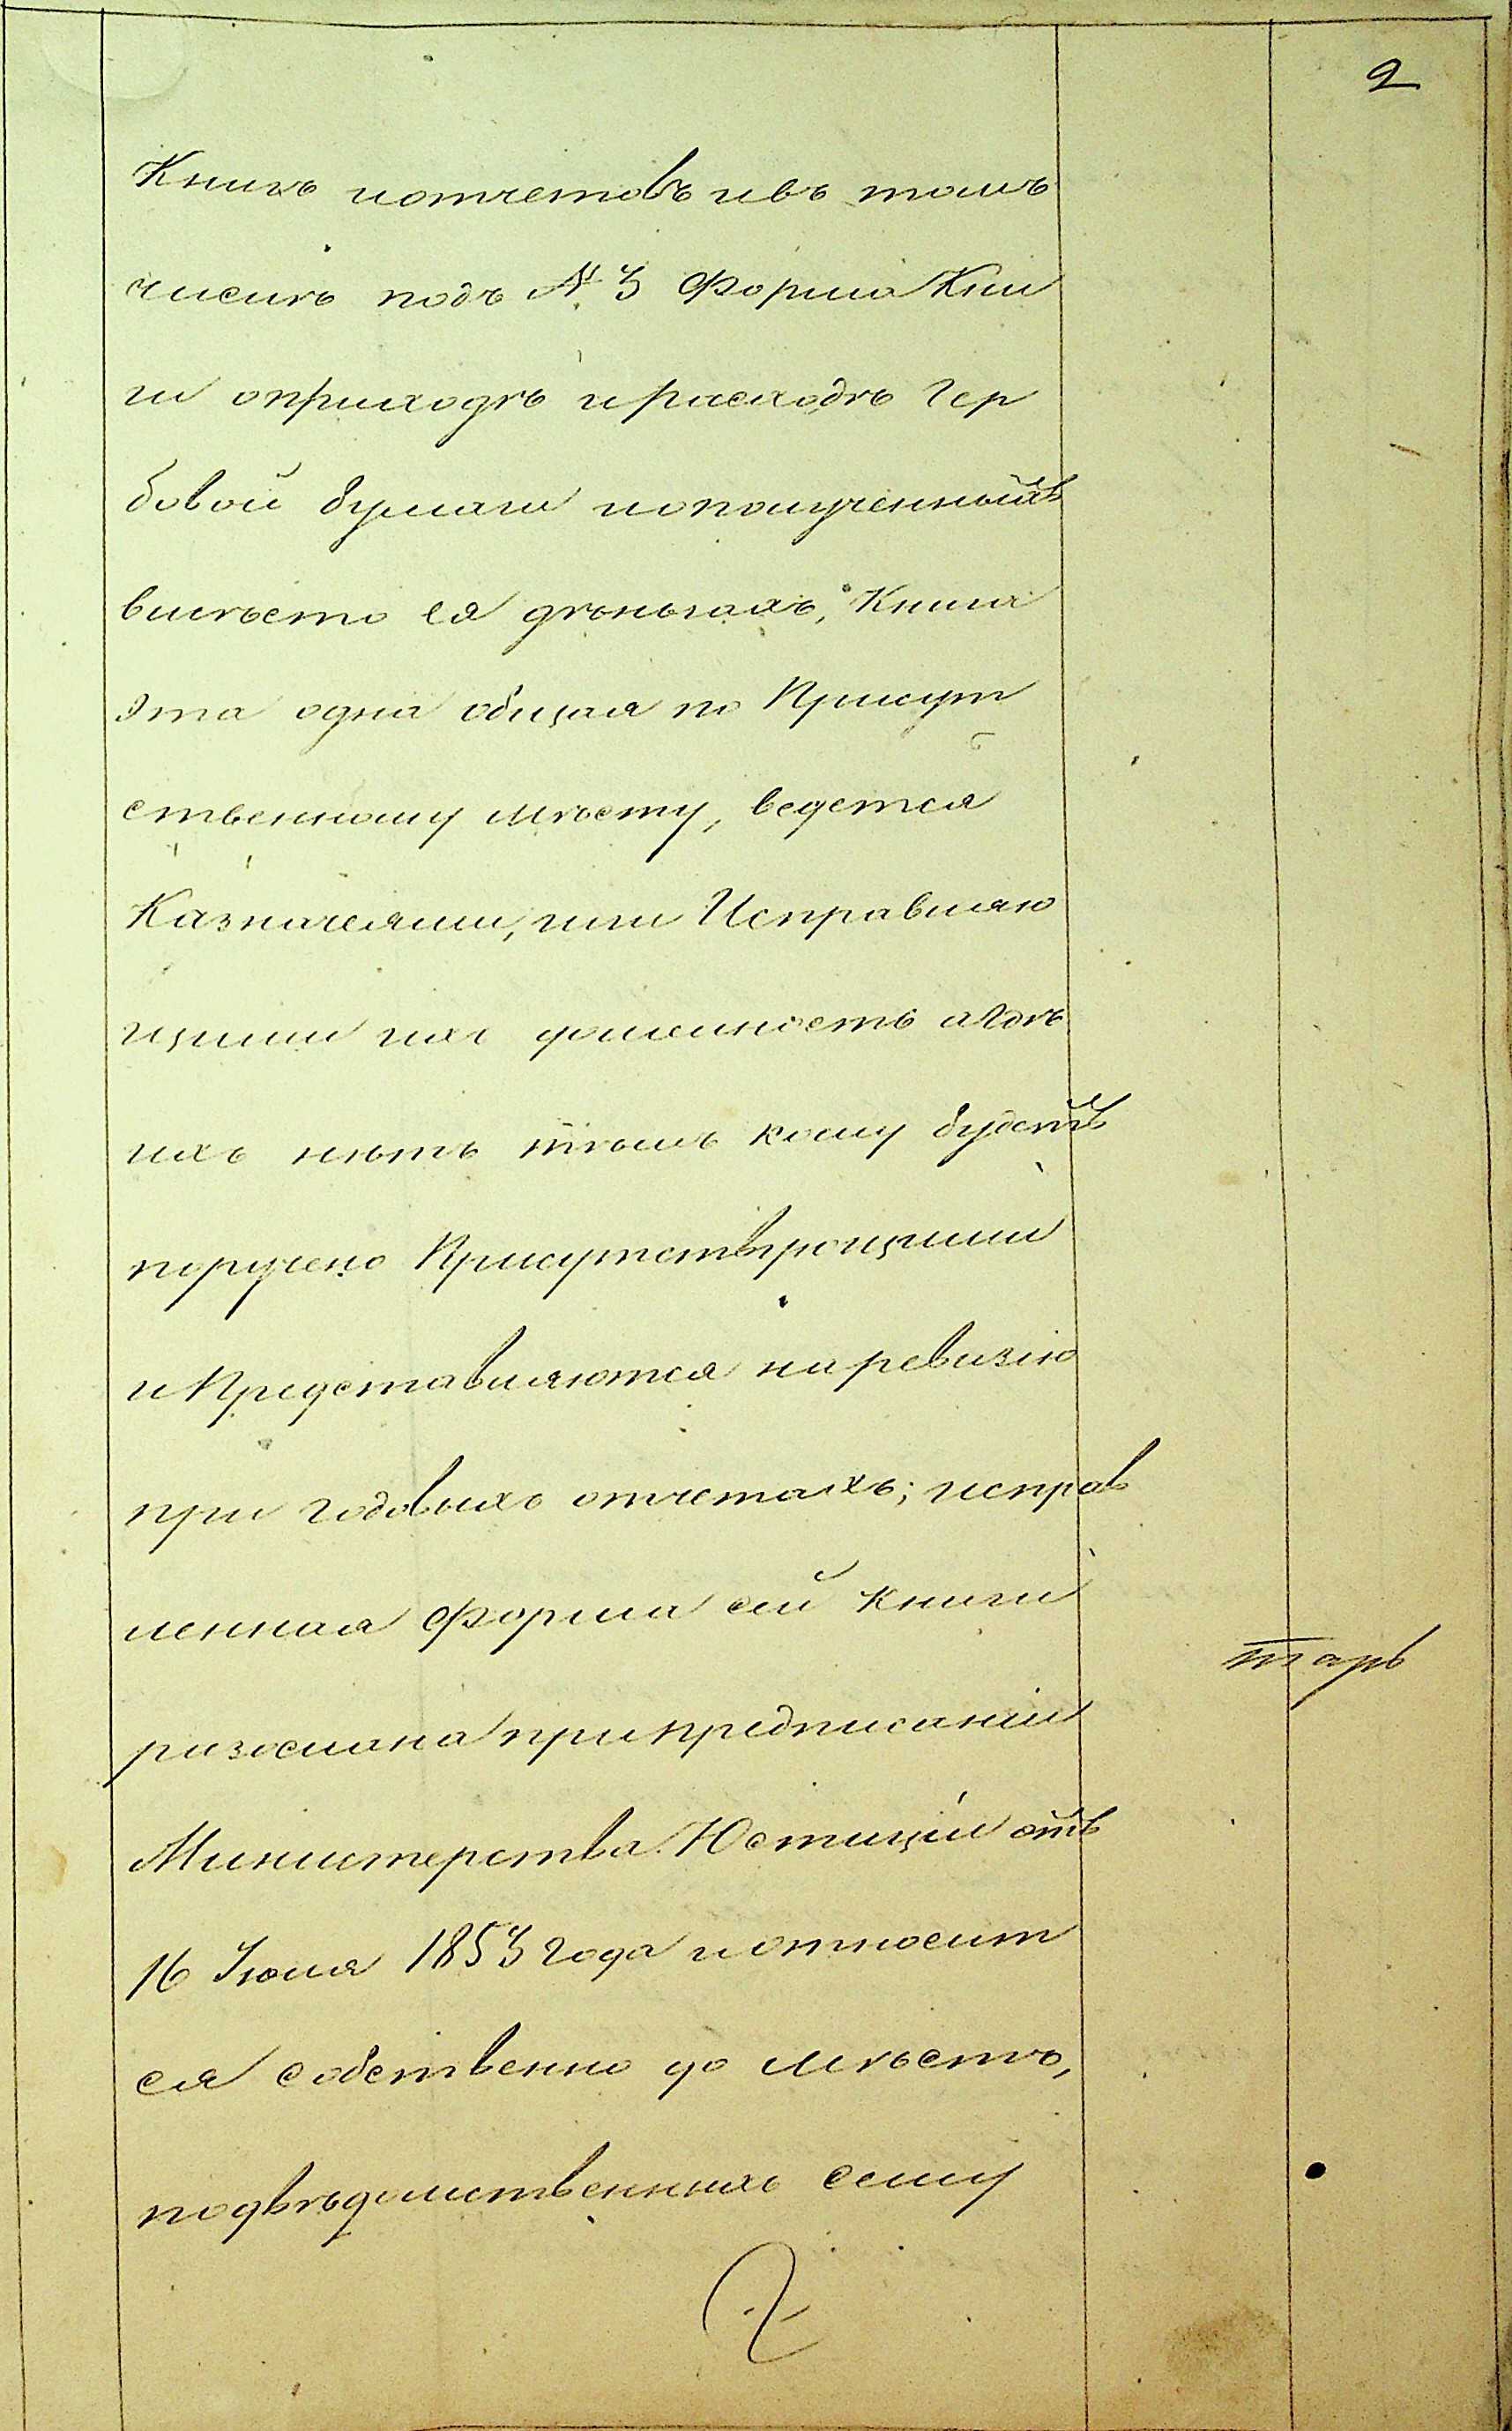 2
Книгъ и отчетовъ и въ томъ
числѣ подъ № 3 Форма Кни
ги о приходѣ и расходѣ Гер
бовой бумаги и о полученныхъ
вмѣсто ея дѣньгахъ, Книга
эта одна общая по Присут
ственному мѣсту, ведется
Казначеями, или Исправляю
щими ихъ должность а гдѣ
ихъ нѣтъ тѣмъ кому будетъ
поручено Присутствующими
и Представляются на ревизію
при годовыхъ отчетахъ; исправ
ленная Форма сей книги
разослана при предписаніи
Министерства Юстиціи отъ
16 Іюля 1853 года и относит
ся собственно до мѣстъ,
подвѣдомственныхъ сему
тарь